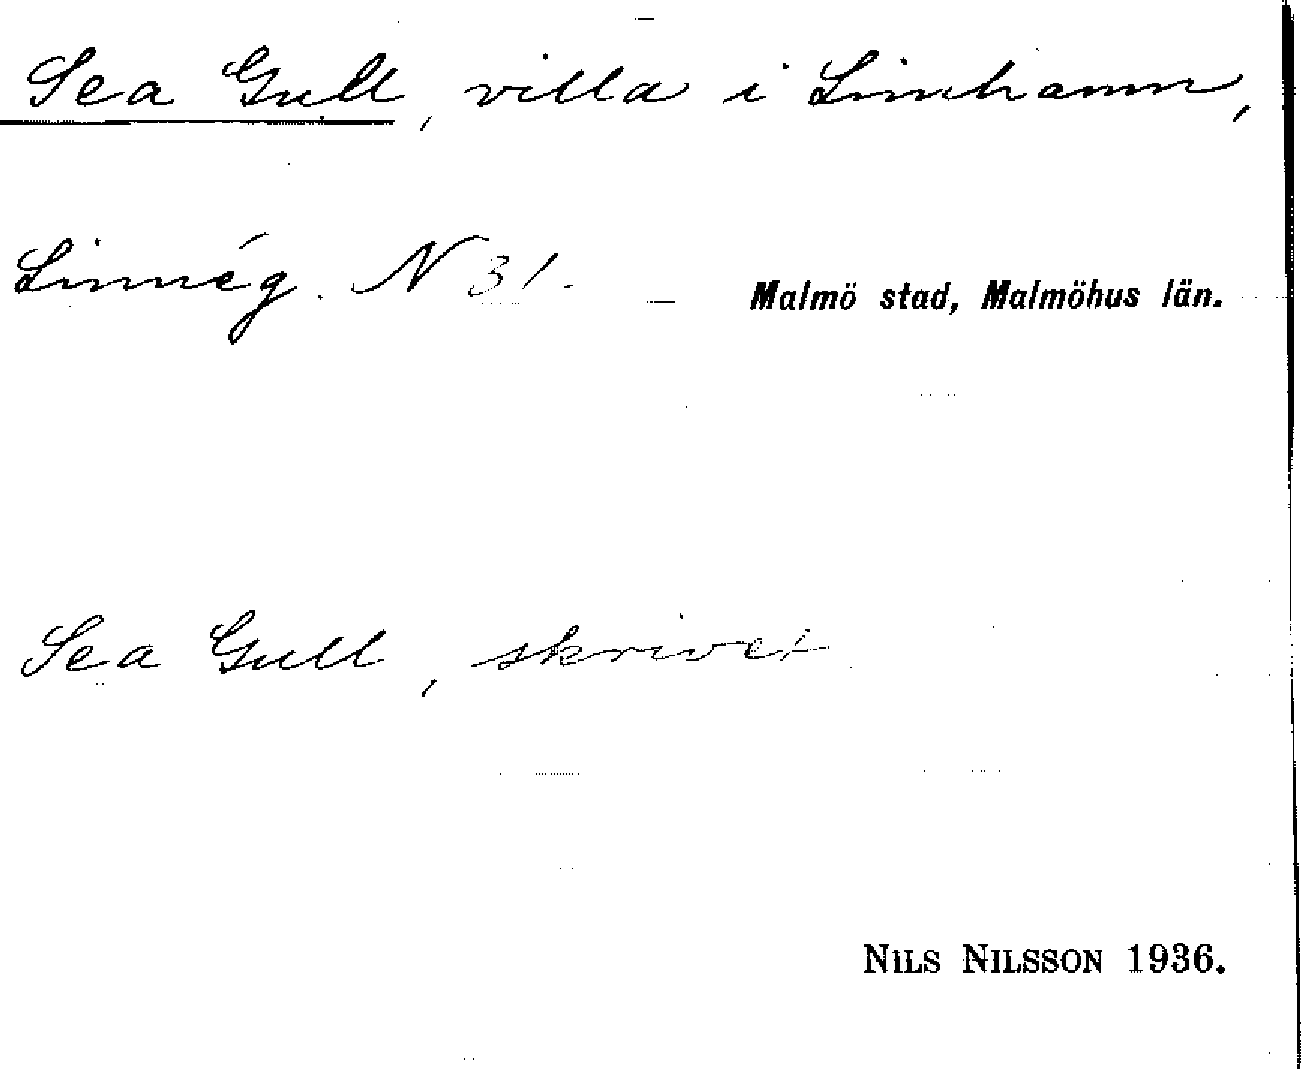 Sea Gull, villa i Limhamn,
Linnég. N 31. Malmö stad, Malmöhus län.
Sea Gull, skrivet
NILS NILSSON 1936.